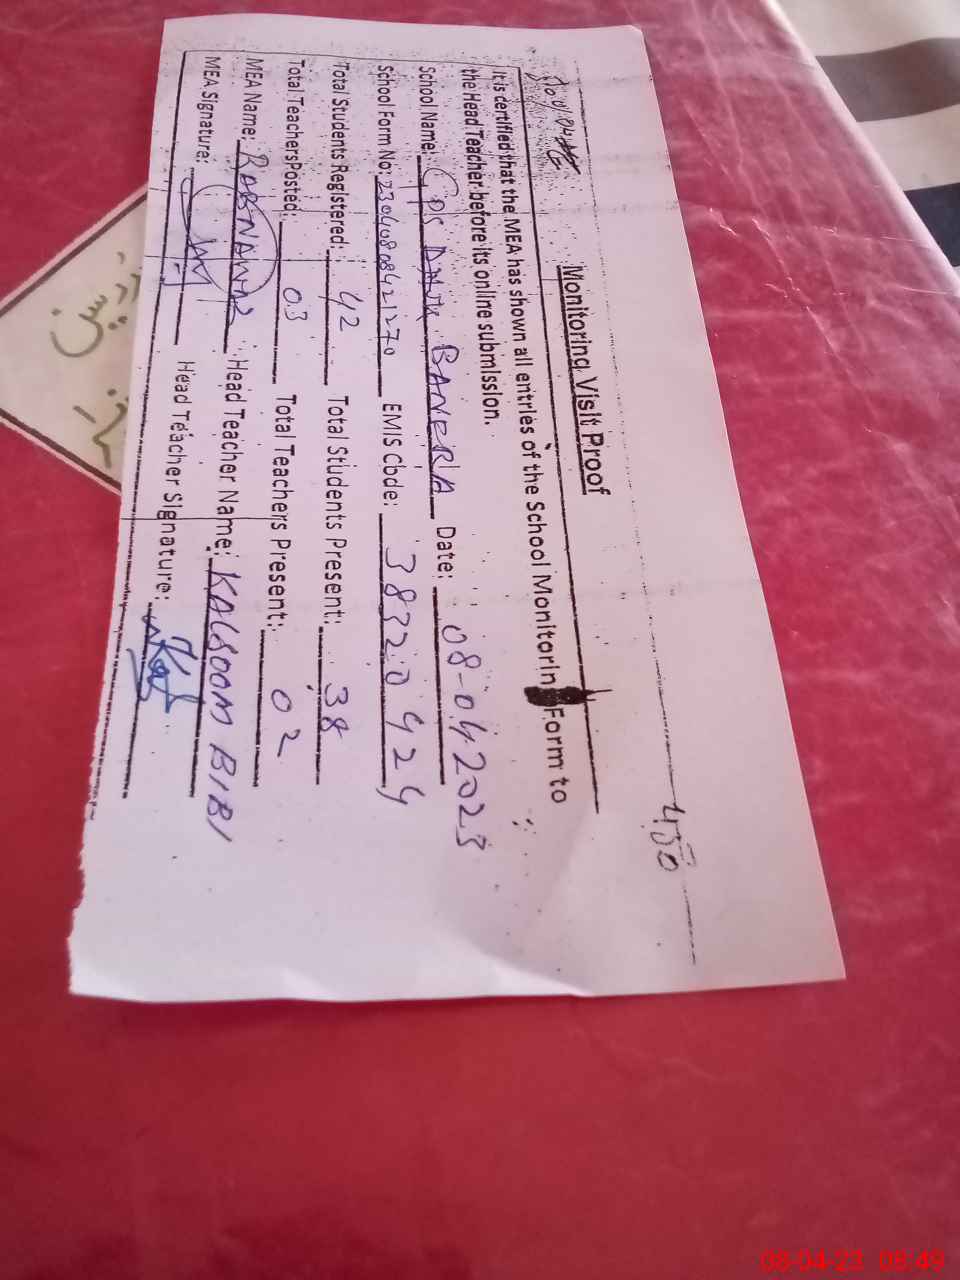 430
Monitoring Visit Proof
It is certified that the MEA has shown all entries of the School Monitorin Form to
the Head Teacher before its online submission.
School Name: GPS BANERA Date: 08-04-2023
School Form No: 23040808421270 EMIS Code: 38320424
Total Students Registered: 42 Total Students Present: 38
Total Teachers Posted: 03 Total Teachers Present: 02
MEA Name: RABNAWAZ Head Teacher Name: KALSOOM BIBI
MEA Signature: Head Teacher Signature:
08-04-23 08:49